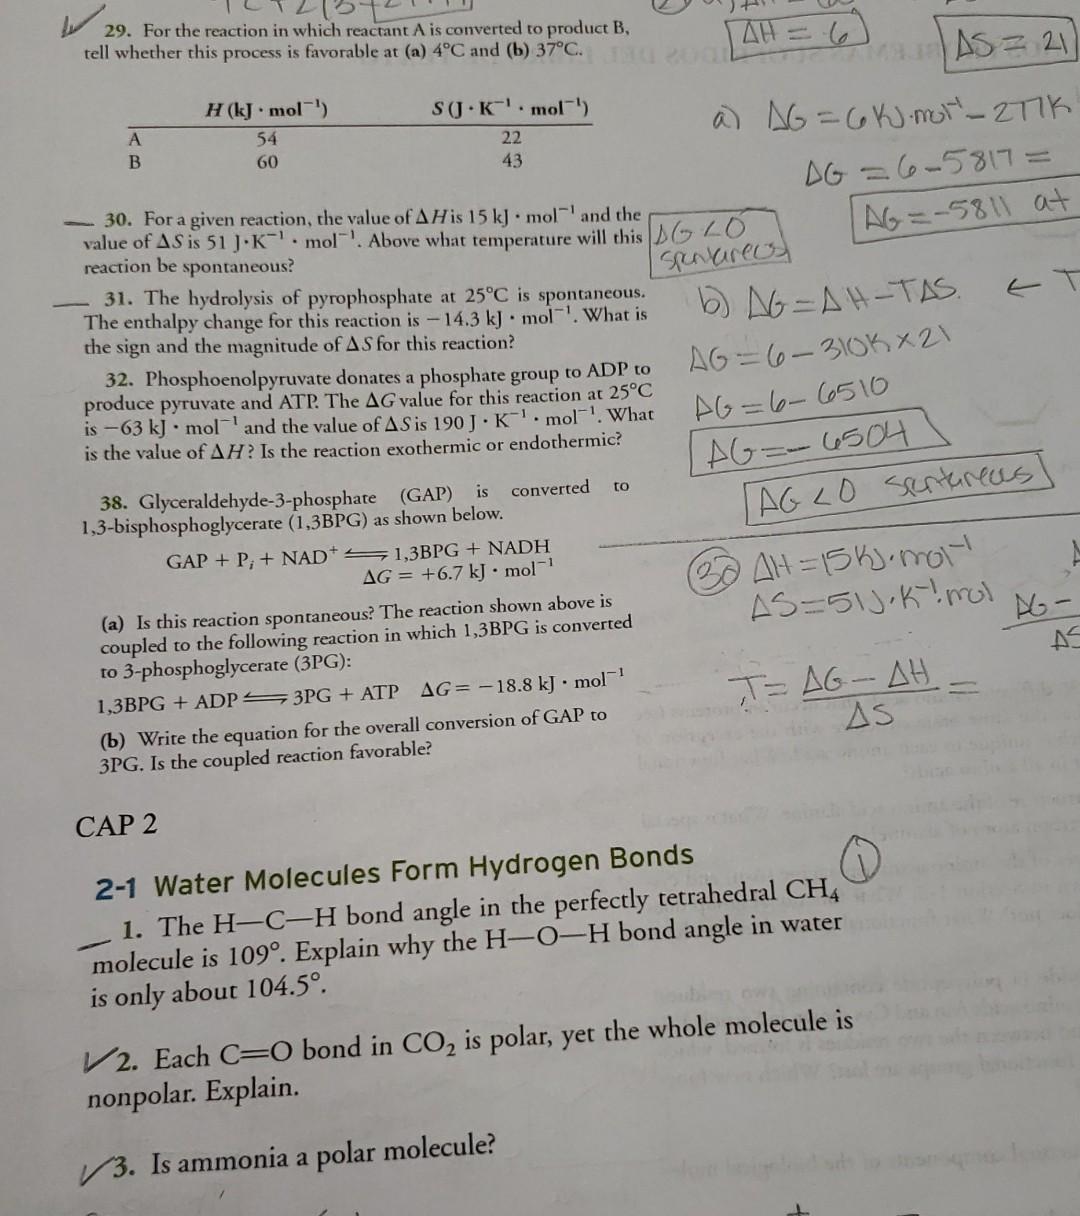 29. For the reaction in which reactant A is converted to product B,
tell whether this process is favorable at (a) 4°C and (b) 37°C.
H (kJ · mol⁻¹) S (J · K⁻¹ · mol⁻¹)
A 54 22
B 60 43
30. For a given reaction, the value of ΔH is 15 kJ · mol⁻¹ and the
value of ΔS is 51 J·K⁻¹ · mol⁻¹. Above what temperature will this
reaction be spontaneous?
31. The hydrolysis of pyrophosphate at 25°C is spontaneous.
The enthalpy change for this reaction is −14.3 kJ · mol⁻¹. What is
the sign and the magnitude of ΔS for this reaction?
32. Phosphoenolpyruvate donates a phosphate group to ADP to
produce pyruvate and ATP. The ΔG value for this reaction at 25°C
is −63 kJ · mol⁻¹ and the value of ΔS is 190 J · K⁻¹ · mol⁻¹. What
is the value of ΔH? Is the reaction exothermic or endothermic?
38. Glyceraldehyde-3-phosphate (GAP) is converted to
1,3-bisphosphoglycerate (1,3BPG) as shown below.
GAP + Pᵢ + NAD⁺ ⇌ 1,3BPG + NADH
ΔG = +6.7 kJ · mol⁻¹
(a) Is this reaction spontaneous? The reaction shown above is
coupled to the following reaction in which 1,3BPG is converted
to 3-phosphoglycerate (3PG):
1,3BPG + ADP ⇌ 3PG + ATP ΔG = −18.8 kJ · mol⁻¹
(b) Write the equation for the overall conversion of GAP to
3PG. Is the coupled reaction favorable?
ΔH = 6
ΔS = 21
a) ΔG = 6 KJ·mol⁻¹ − 277K
ΔG = 6 − 5817 =
ΔG = −5811 at
ΔG < 0
b) ΔG = ΔH − TΔS. ← T
ΔG = 6 − 310K × 21
ΔG = 6 − 6510
ΔG = − 6504
ΔG < 0 spontaneous
30 ΔH = 15 KJ·mol⁻¹
ΔS = 51 J·K⁻¹·mol
ΔG −
ΔS
T = ΔG − ΔH =
ΔS
CAP 2
2-1 Water Molecules Form Hydrogen Bonds
1
1. The H—C—H bond angle in the perfectly tetrahedral CH₄
molecule is 109°. Explain why the H—O—H bond angle in water
is only about 104.5°.
2. Each C=O bond in CO₂ is polar, yet the whole molecule is
nonpolar. Explain.
3. Is ammonia a polar molecule?